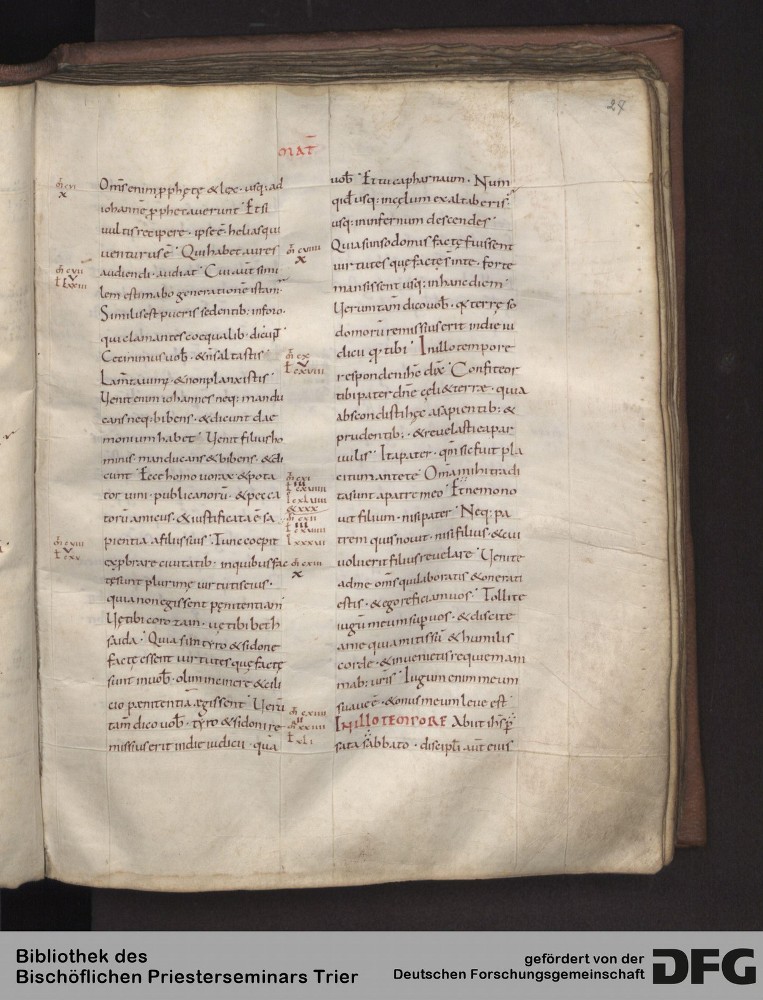 24
MAT
Om̄s enim ꝓphetę & lex · usq; ad
iohannē ꝓphetauerunt · Et si
uultis recipere · ipse ē helias qui
uenturus ē · Qui habet aures
audiendi · audiat · Cui aūt simi
lem estimabo generationē istam ·
Similis est pueris sedentib; in foro ·
qui clamantes coęqualib · dicunt
Cecinimus uob̄ · & n̄ saltastis
Lam̄tauim; · & non planxistis
Uenit enim iohannes neq; mandu
cans neq; bibens · & dicunt dae
monium habet · Uenit filius ho
minis · manducans & bibens · & di
cunt · Ecce homo uorax & pota
tor uini · publicanorū · & pecca
torū amicus · & iustificata ē sa
pientia a filiis suis · Tunc coepit
exprobrare ciuitatib; in quibus fac
tę sunt plurimę uirtutis eius ·
quia non egissent pęnitentiam
Uę tibi corozain · uę tibi beth
saida · Quia si in tyro & sidone
factę essent uirtutes quę factę
sunt in uob̄ · olim in cinere & cili
cio pænitentiā ægissent · Uerū
tam̄ dico uob̄ · tyro & sidoni re
missius erit in die iudicii · quā
uob̄ · Et tu capharnaum · Num
quid usq; in cęlum exaltaberis ·
usq; in infernum descendes ·
Quia si in sodomis factę fuissent
uirtutes quę factę s̄ in te · forte
mansissent usq; in hanc diem ·
Uerum tam̄ dico uob̄ · q terrę so
domorū remissius erit in die iu
dicii q tibi · In illo tempore
respondens ih̄c dix̄ · Confiteor
tibi pater dn̄e cęli & terræ · quia
abscondisti hęc a sapientib; &
prudentib; · & reuelasti ea par
uulis · Ita pater · qm̄ sic fuit pla
citum ante te · Om̄a mihi tradi
ta sunt a patre meo · Et nemo no
uit filium · nisi pater · Neq; pa
trem quis nouit · nisi filius · & cui
uoluerit filius reuelare · Uenite
ad me om̄s qui laboratis & onerati
estis · & ego reficiam uos · Tollite
iugū meum sup uos · & discite
a me quia mitis sū & humilis
corde · & inuenietis requiem ani
mab; uris̄ · Iugum enim meum
suaue ē · & onus meum leue est ·
IN ILLO TEMPORE Abiit ih̄s p
sata sabbato · discipli aūt eius
Bibliothek des
Bischöflichen Priesterseminars Trier
gefördert von der
Deutschen Forschungsgemeinschaft
DFG